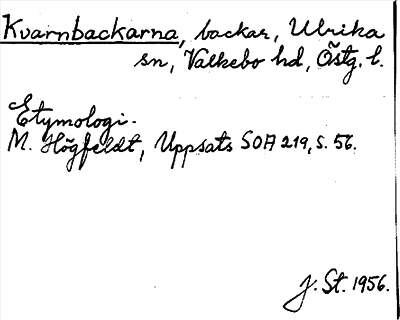 Kvarnbackarna, backar, Ulrika
sn, Valkebo hd, Östg. l.
Etymologi.
M. Högfeldt, Uppsats SOA 219, s. 56.
J. St. 1956.